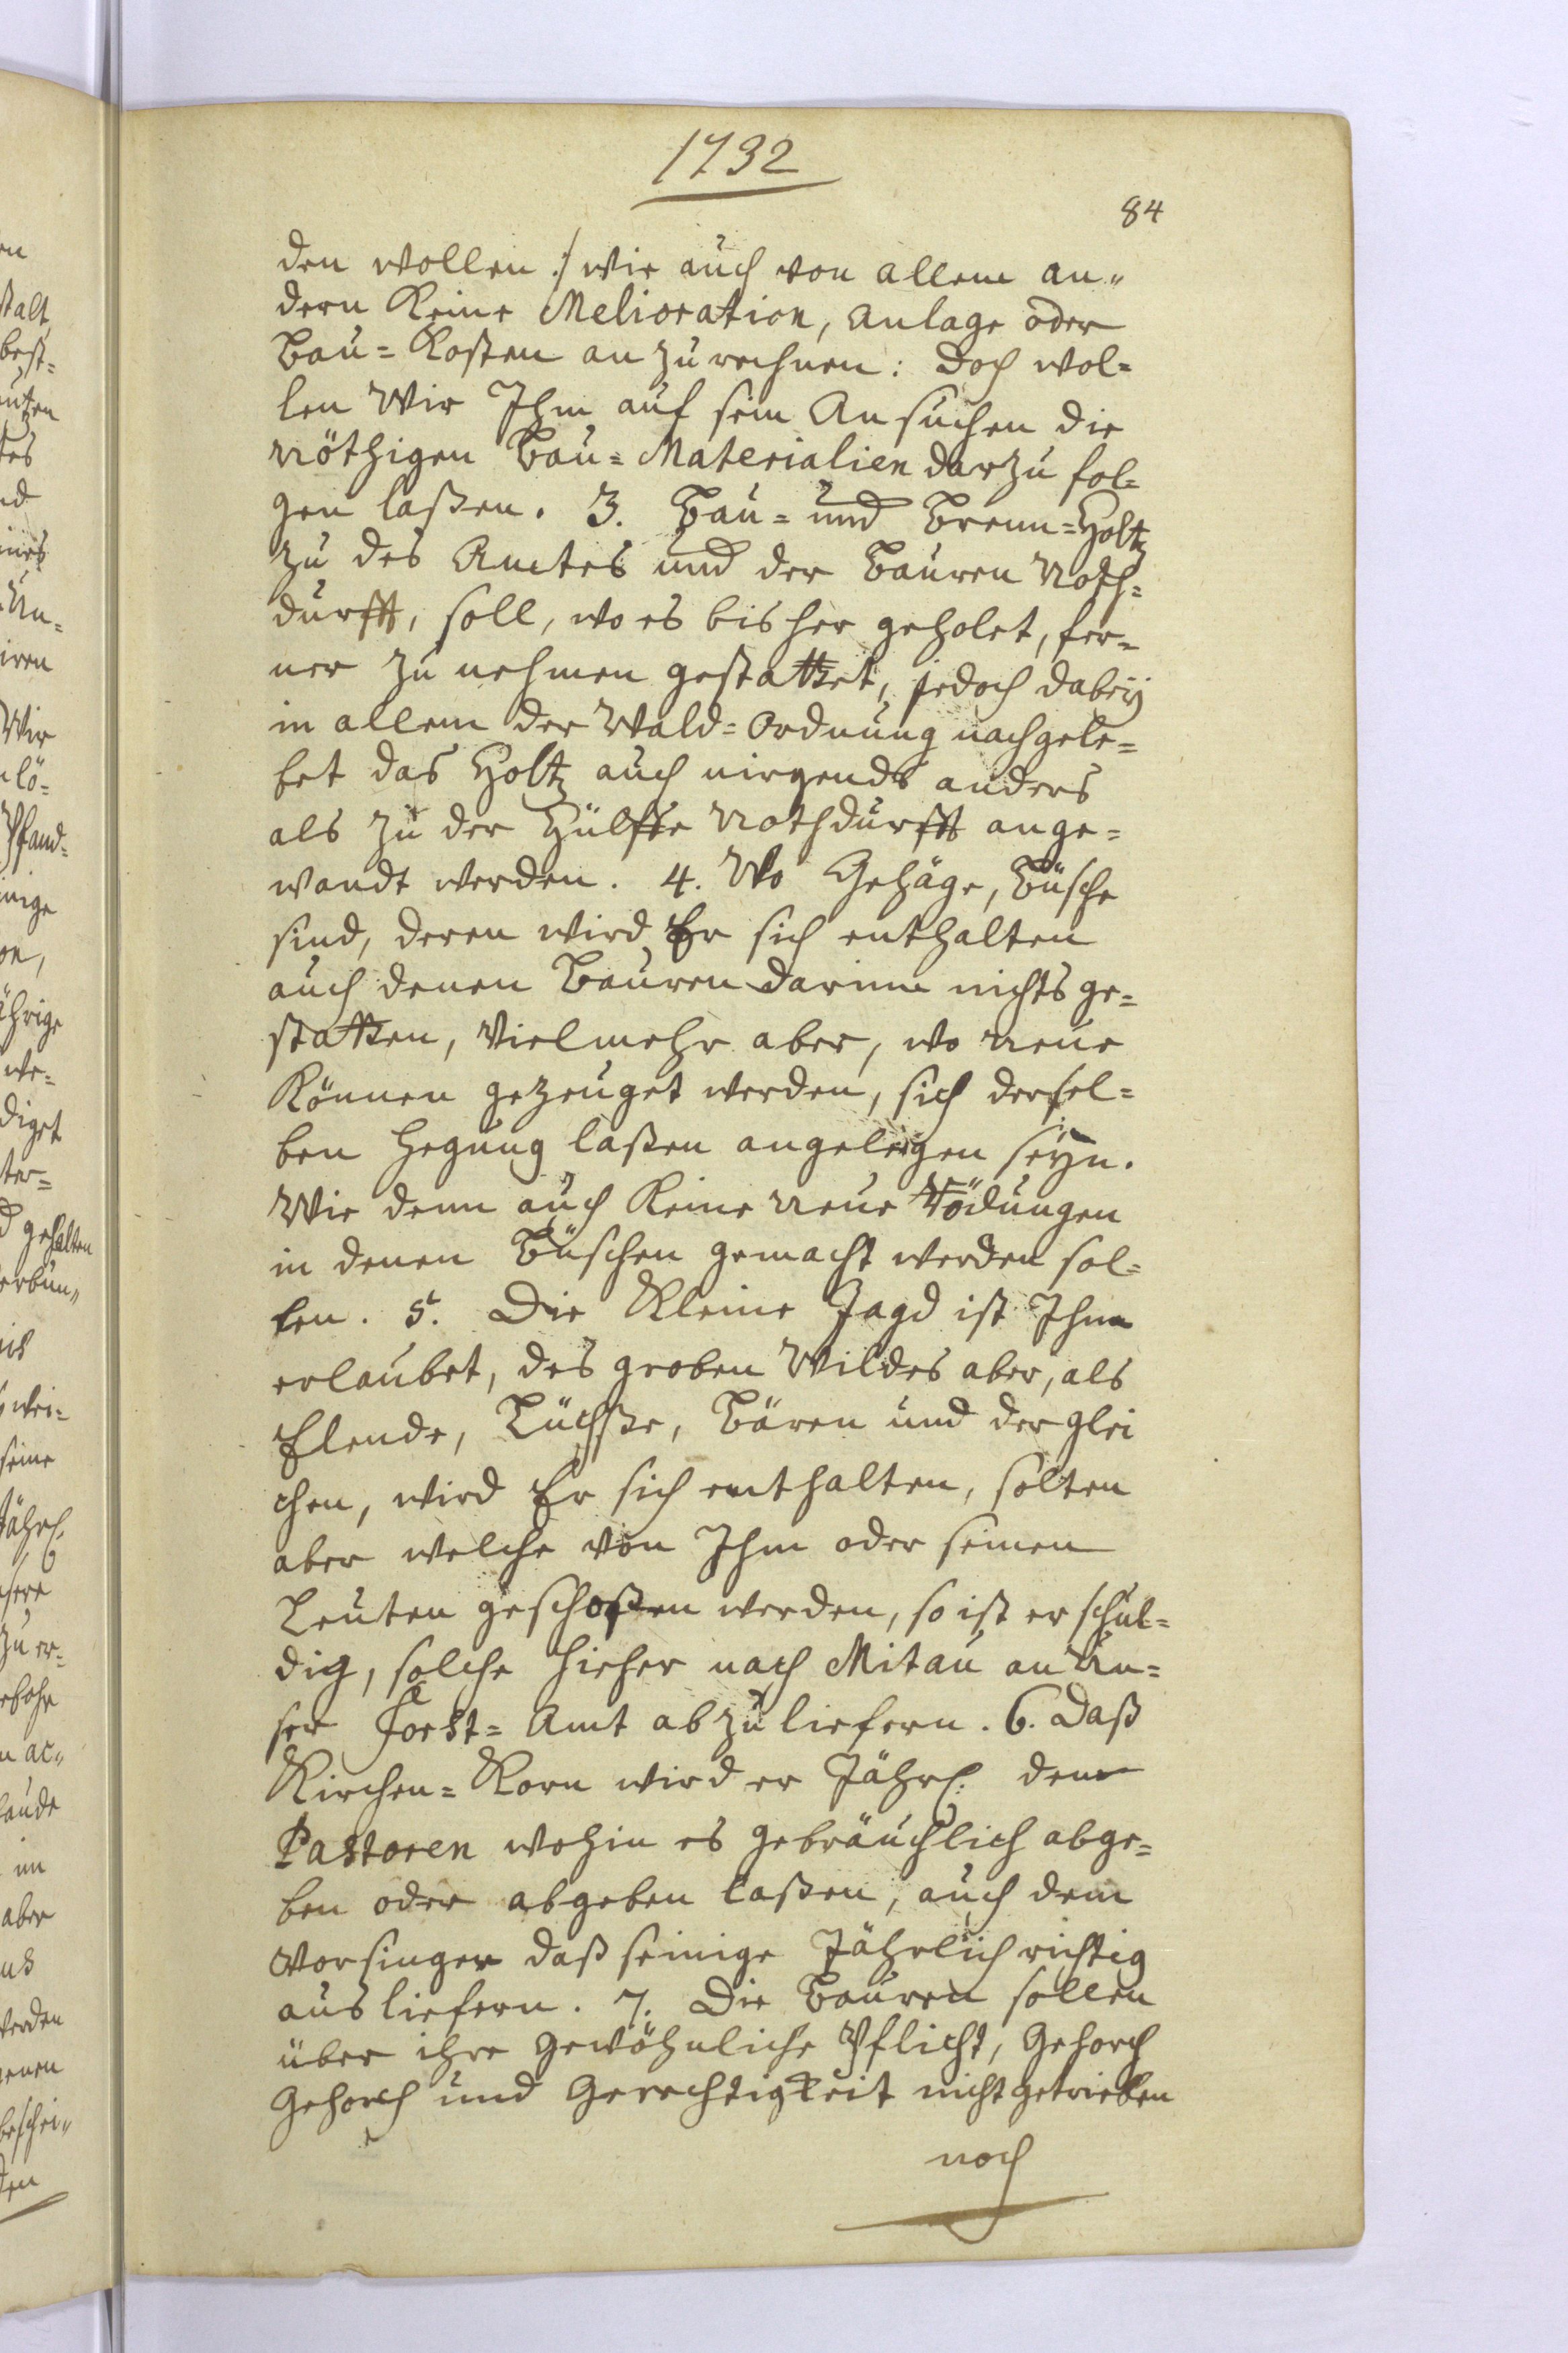 1732
84
den wollen :/ wie auch von allem an„
dern Keine Melioration, Anlage oder
Bau= Kosten an zu rechnen: Doch wol=
len Wir Ihm auf sein An suchen die
nöthigen Bau= Materialien darzu fol=
gen laßen. 3. Bau= und Brenn=Holtz
zu des Amtes und der Bauren Noth=
durfft, soll, wo es bis her geholet, fer=
ner zu nehmen gestattet, jedoch dabeÿ
in allem der Wald= Ordnung nachgele=
bet das Holtz auch nirgends anders
als zu der Hülffe Nothdurfft ange=
wandt werden. 4. Wo Gehäge, Büsche
sind, deren wird Er sich enthalten
auch denen Bauren darinne nichts ge=
statten, Vielmehr aber, wo neue
Können gezeuget werden, sich dersel=
ben Hegung laßen angelegen seÿn.
Wie denn auch Keine neue Rödungen
in denen Büschen gemacht werden sol=
len. 5. Die Kleine Jagd ist Ihm
erlaubet, des groben Wildes aber, als
Elende, Lüchße, Bären und der glei
chen, wird Er sich enthalten, solten
aber welche von Ihm oder seinen
Leuten geschoßen werden, so ist er schul=
dig, solche hieher nach Mitau an Un=
ser Forst= Amt abzuliefern. 6. Daß
Kirchen= Korn wird er Jährl. dem
Pastoren wohin es gebräuchlich abge=
ben oder abgeben laßen, auch dem
Vorsinger daß seinige Jährlich richtig
ausliefern. 7. Die Bauren sollen
über ihre gewöhnliche Pflicht, Gehorch
Gehorch und Gerechtigkeit nicht getrieben
noch